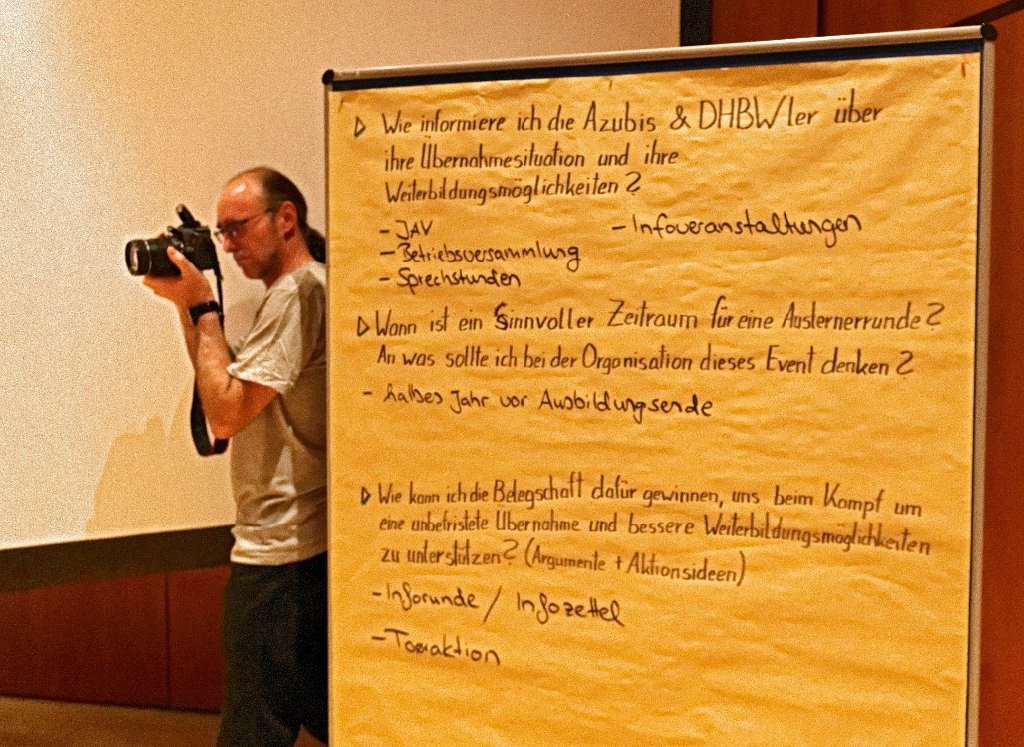 ▷ Wie informiere ich die Azubis & DHBW'ler über
ihre Übernahmesituation und ihre
Weiterbildungsmöglichkeiten?
- JAV
- Infoveranstaltungen
- Betriebsversammlung
- Sprechstunden
▷ Wann ist ein Sinnvoller Zeitraum für eine Auslernerrunde?
An was sollte ich bei der Organisation dieses Event denken?
- halbes Jahr vor Ausbildungsende
▷ Wie kann ich die Belegschaft dafür gewinnen, uns beim Kampf um
eine unbefristete Übernahme und bessere Weiterbildungsmöglichkeiten
zu unterstützen? (Argumente + Aktionsideen)
- Inforunde / Infozettel
- Toraktion